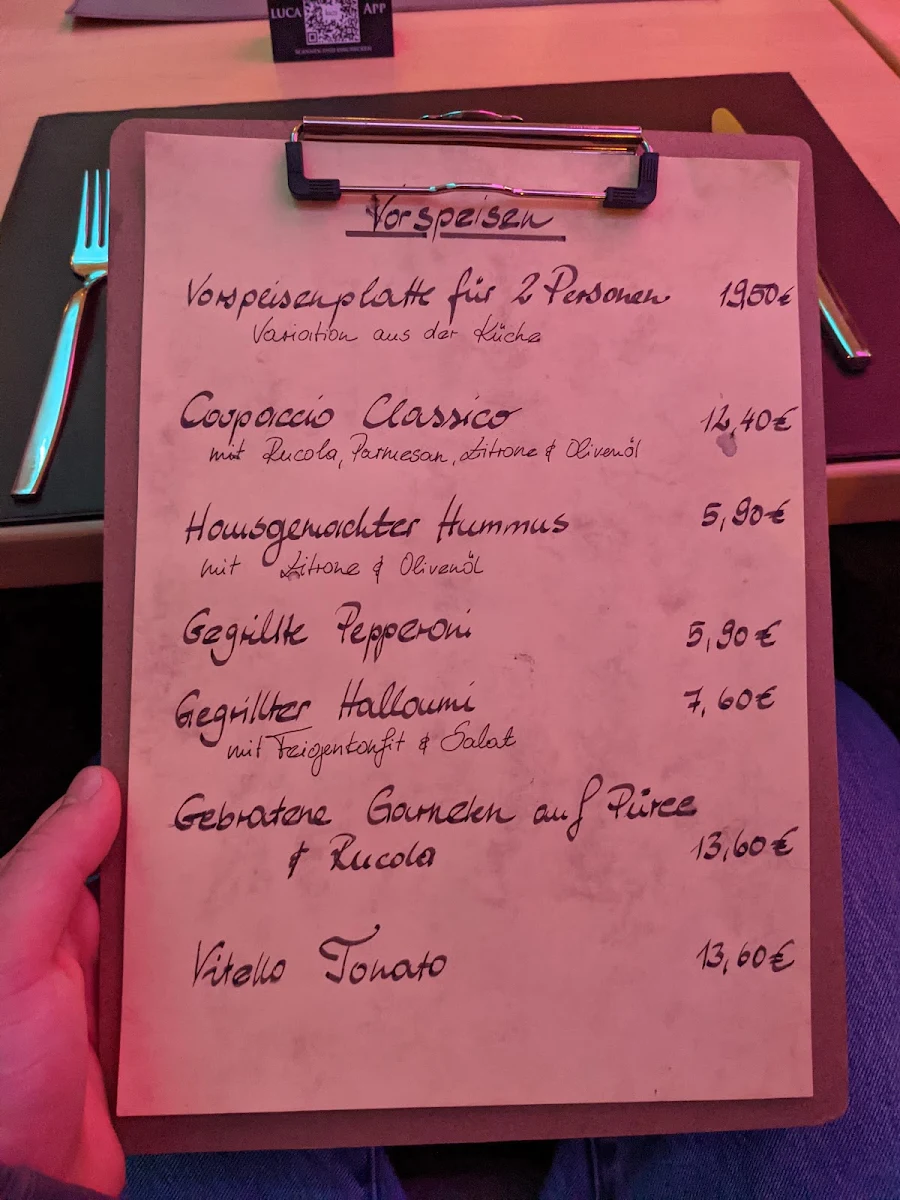 LUCA APP
Vorspeisen
Vorspeisenplatte für 2 Personen 19,50€
Variation aus der Küche
Carpaccio Classico 12,40€
mit Rucola, Parmesan, Zitrone & Olivenöl
Hausgemachter Hummus 5,90€
mit Zitrone & Olivenöl
Gegrillte Pepperoni 5,90€
Gegrillter Halloumi 7,60€
mit Feigenkonfit & Salat
Gebratene Garnelen auf Püree
& Rucola 13,60€
Vitello Tonato 13,60€